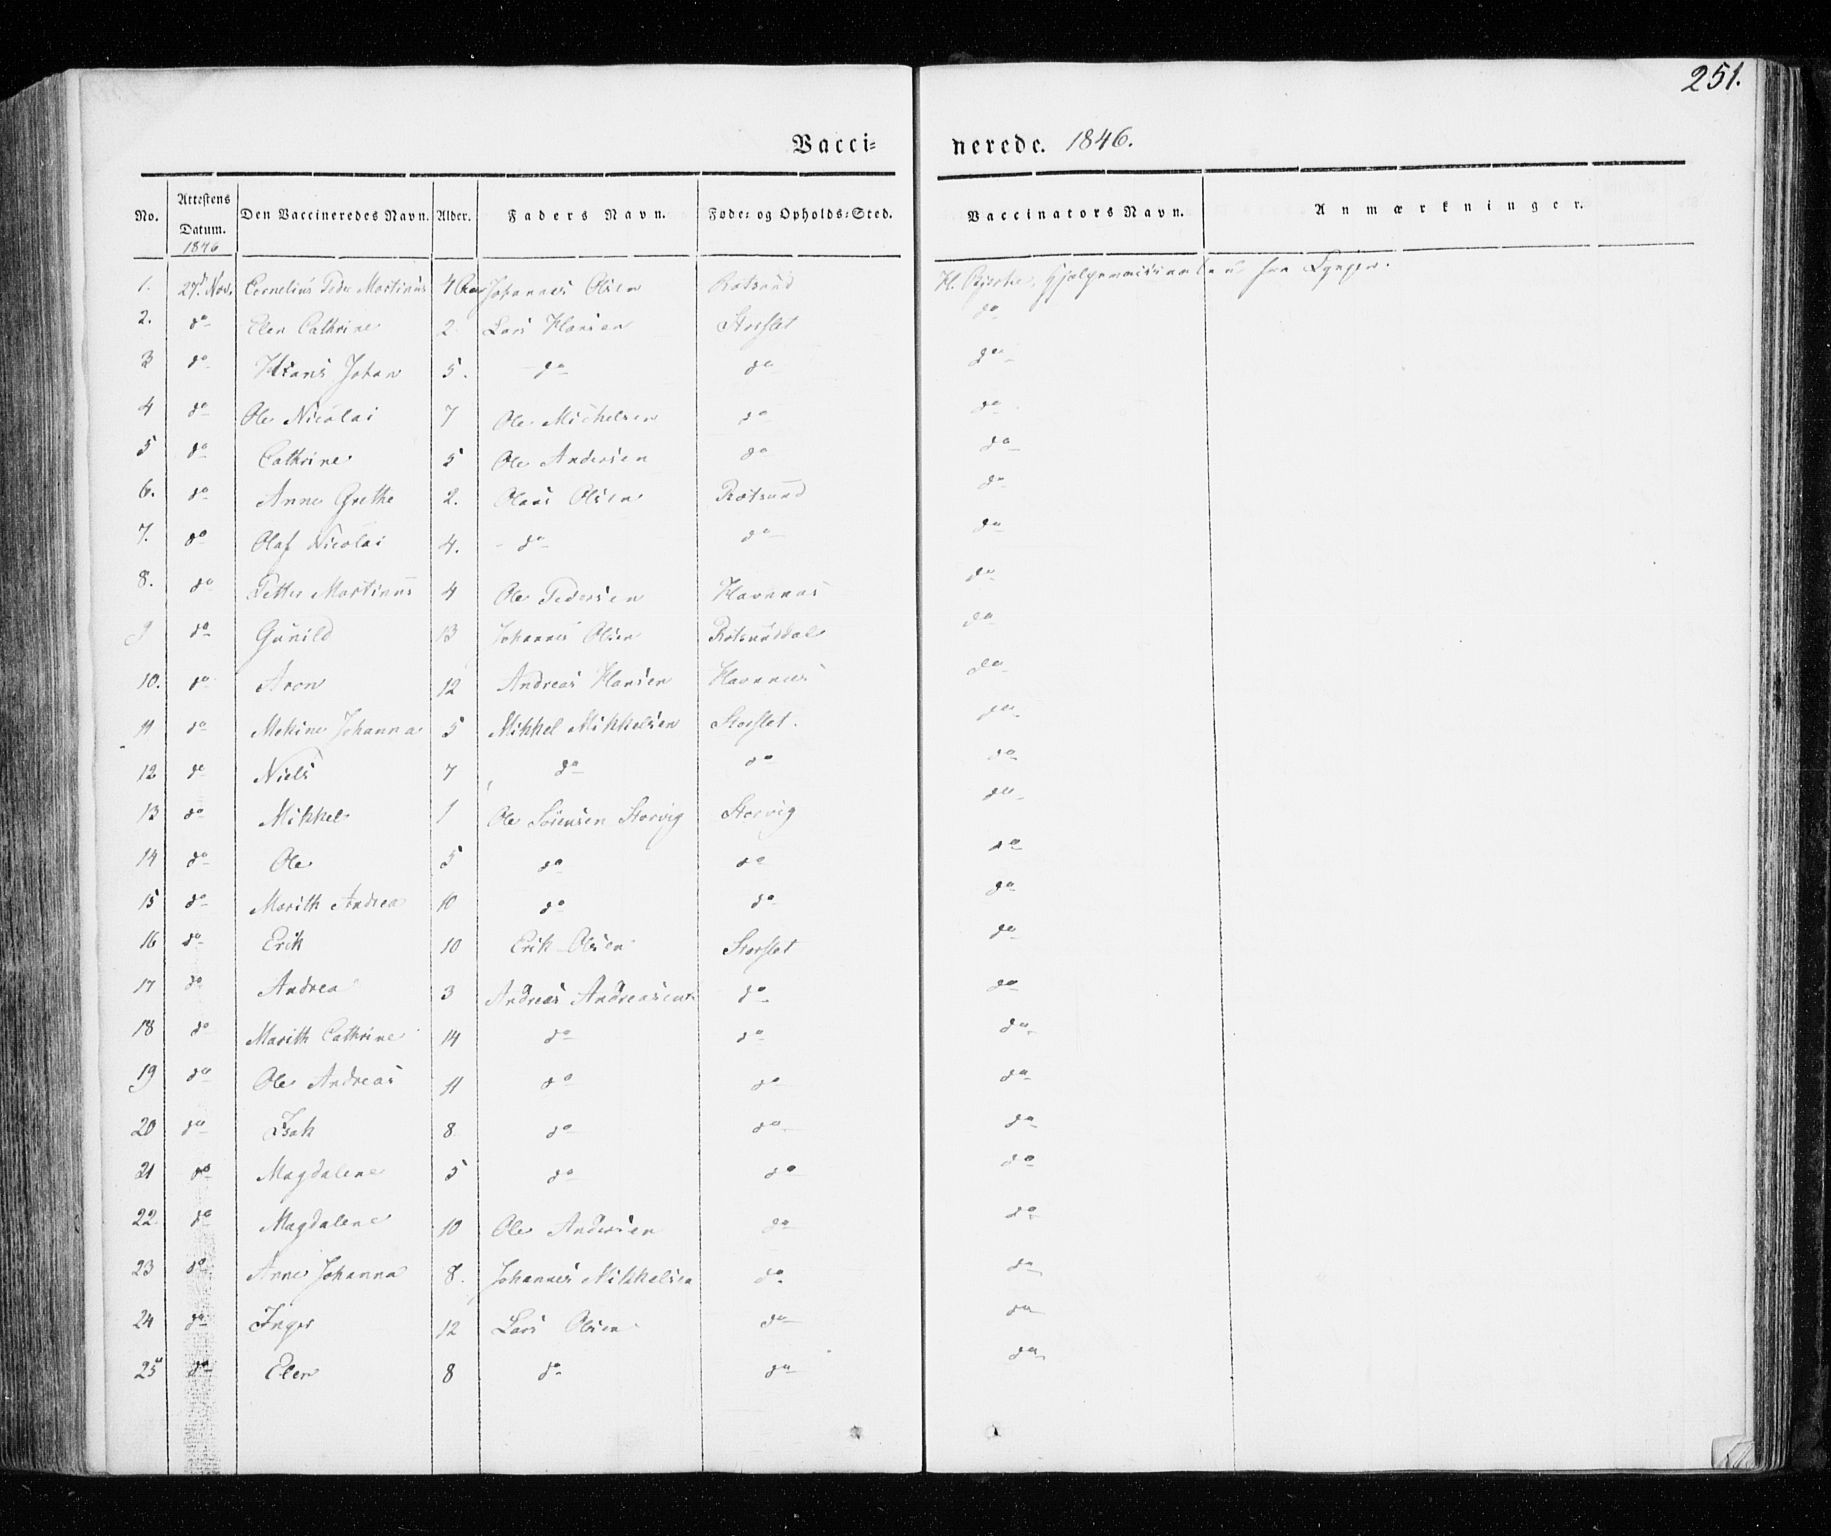 251.
Vacci= nerede. 1846.
No. Attestens Datum. Den Vaccineredes Navn. Alder. Faders Navn. Føde= og Opholds=Sted. Vaccinators Navn. Anmærkninger.
1846
1. 27d Nov. Cornelius Peder Martinus 4 Johannes Olsen Rotsund H. Hjelpevaccinateur fra Lyngen.
2. do Elen Cathrine 2. Lars Hansen Storslet do
3 do Hans Johan 5. do do do
4 do Ole Nicolai 7 Ole Michelsen do do
5 do Cathrine 5 Ole Andersen do do
6. do Anne Grethe 2. Olaus Olsen Rotsund do
7. do Olaf Nicolai 4. do do do
8. do Petter Martinus 4 Ole Pedersen Havnnæs do
9 do Gunild 13 Johannes Olsen Rotsunddal do
10. do Aron 12 Andreas Hansen Havnnæs do
11 do Mekine Johanna 5 Mikkel Mikkelsen Storslet. do
12 do Niels 7 do do do
13 do Mikkel 1 Ole Sørensen Storvig Storvig do
14 do Ole 5 do do do
15 do Marith Andrea 10 do do do
16 do Erik 10 Erik Olsen Storslet do
17 do Andrea 3 Andreas Andreasen do do
18 do Marith Cathrine 14 do do do
19 do Ole Andreas 11 do do do
20 do Isak 8 do do do
21 do Magdalene 5 do do do
22. do Magdalene 10 Ole Andersen do do
23 do Anne Johanna 8. Johannes Mikkelsen do do
24 do Inger 12 Lars Olsen do do
25 do Elen 8 do do do